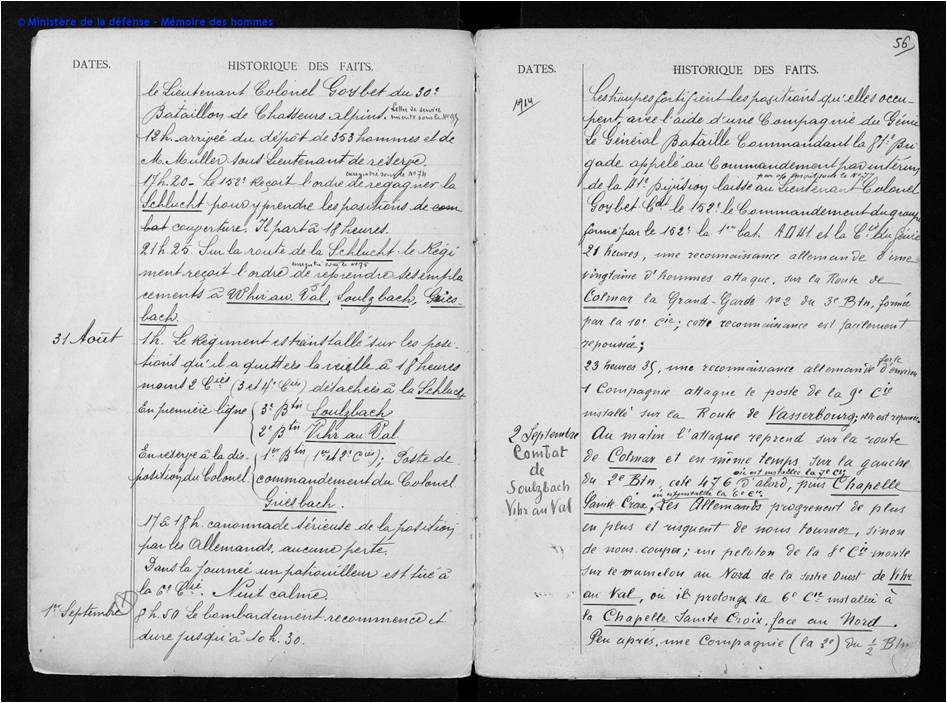 © Ministère de la défense - Mémoire des hommes
DATES.
HISTORIQUE DES FAITS.
le Lieutenant Colonel Goybet du 30e
Bataillon de Chasseurs alpins. Lettre de service
12h. arrivée du dépôt de 353 hommes et de
M. Muller sous Lieutenant de réserve.
enregistré sous le N° 74
17h.20 - Le 152e reçoit l'ordre de regagner la
Schlucht pour y prendre les positions de com
bat couverture. Il part à 18 heures.
21h 25. Sur la route de la Schlucht le Régi
enregistré sous le N° 75
ment reçoit l'ordre de reprendre ses empla
cements à Wihr au Val, Soulzbach, Gries-
bach.
31 Août
1h. Le Régiment est réinstallé sur les posi
tions qu'il a quittées la veille à 18 heures
moins 2 Cies (3 et 4e Cies) détachées à la Schlucht
En première ligne { 3e Btn Soulzbach
2e Btn Vihr au Val.
En réserve à la dis- { 1er Btn (1re et 2e Cies); Poste de
position du Colonel commandement du Colonel
Griesbach.
17 à 18h. canonnade sérieuse de la position
par les Allemands, aucune perte.
Dans la journée un patrouilleur est tué à
la 6e Cie. Nuit calme.
1er Septembre
8h.50 Le bombardement recommence et
dure jusqu'à 10h.30.
56
DATES.
HISTORIQUE DES FAITS.
1914
Les troupes fortifient les positions qu'elles occu-
pent, avec l'aide d'une Compagnie du Génie
Le Général Bataille Commandant la 81e Bri
gade appelé au Commandement par intérim
de la 41e Division laisse au Lieutenant Colonel
Goybet Cdt le 152e le Commandement du groupe
formé par le 152e la 1re bat. AD 41 et la Cie du Génie
21 heures, une reconnaissance allemande d'une
vingtaine d'hommes attaque, sur la Route de
Colmar la Grand-Garde No 2 du 3e Btn, formée
par la 10e Cie; cette reconnaissance est facilement
repoussée;
23 heures 35, une reconnaissance allemande forte d'environ
1 Compagnie attaque le poste de la 9e Cie
installé sur la Route de Vasserbourg; elle est repoussée.
2 Septembre
Combat
de
Soulzbach
Vihr au Val
Au matin l'attaque reprend sur la route
de Colmar et en même temps sur la gauche
où est installée la 7e Cie
du 2e Btn, cote 476 d'abord, puis Chapelle
où est installée la 6e Cie
Sainte Croix, Les Allemands progressent de plus
en plus et risquent de nous tourner, sinon
de nous couper; un peloton de la 8e Cie monte
sur le mamelon au Nord de la sortie Ouest de Vihr
au Val, où il prolonge la 6e Cie installée à
la Chapelle Sainte Croix, face au Nord.
Peu après, une Compagnie (la 2e) du 1/2 Btn